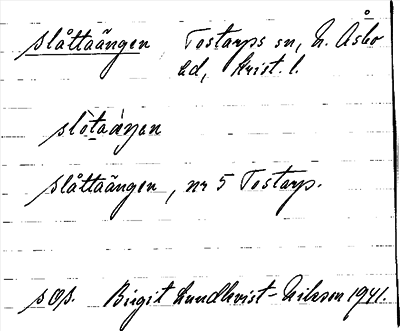 slåttaängen Tostarps sn, N. Åsbo
hd, Krist. l.
slòtaàŋan
slåttaängen, nr 5 Tostarp.
sOs. Birgit Lundkvist-Nilsson 1941.